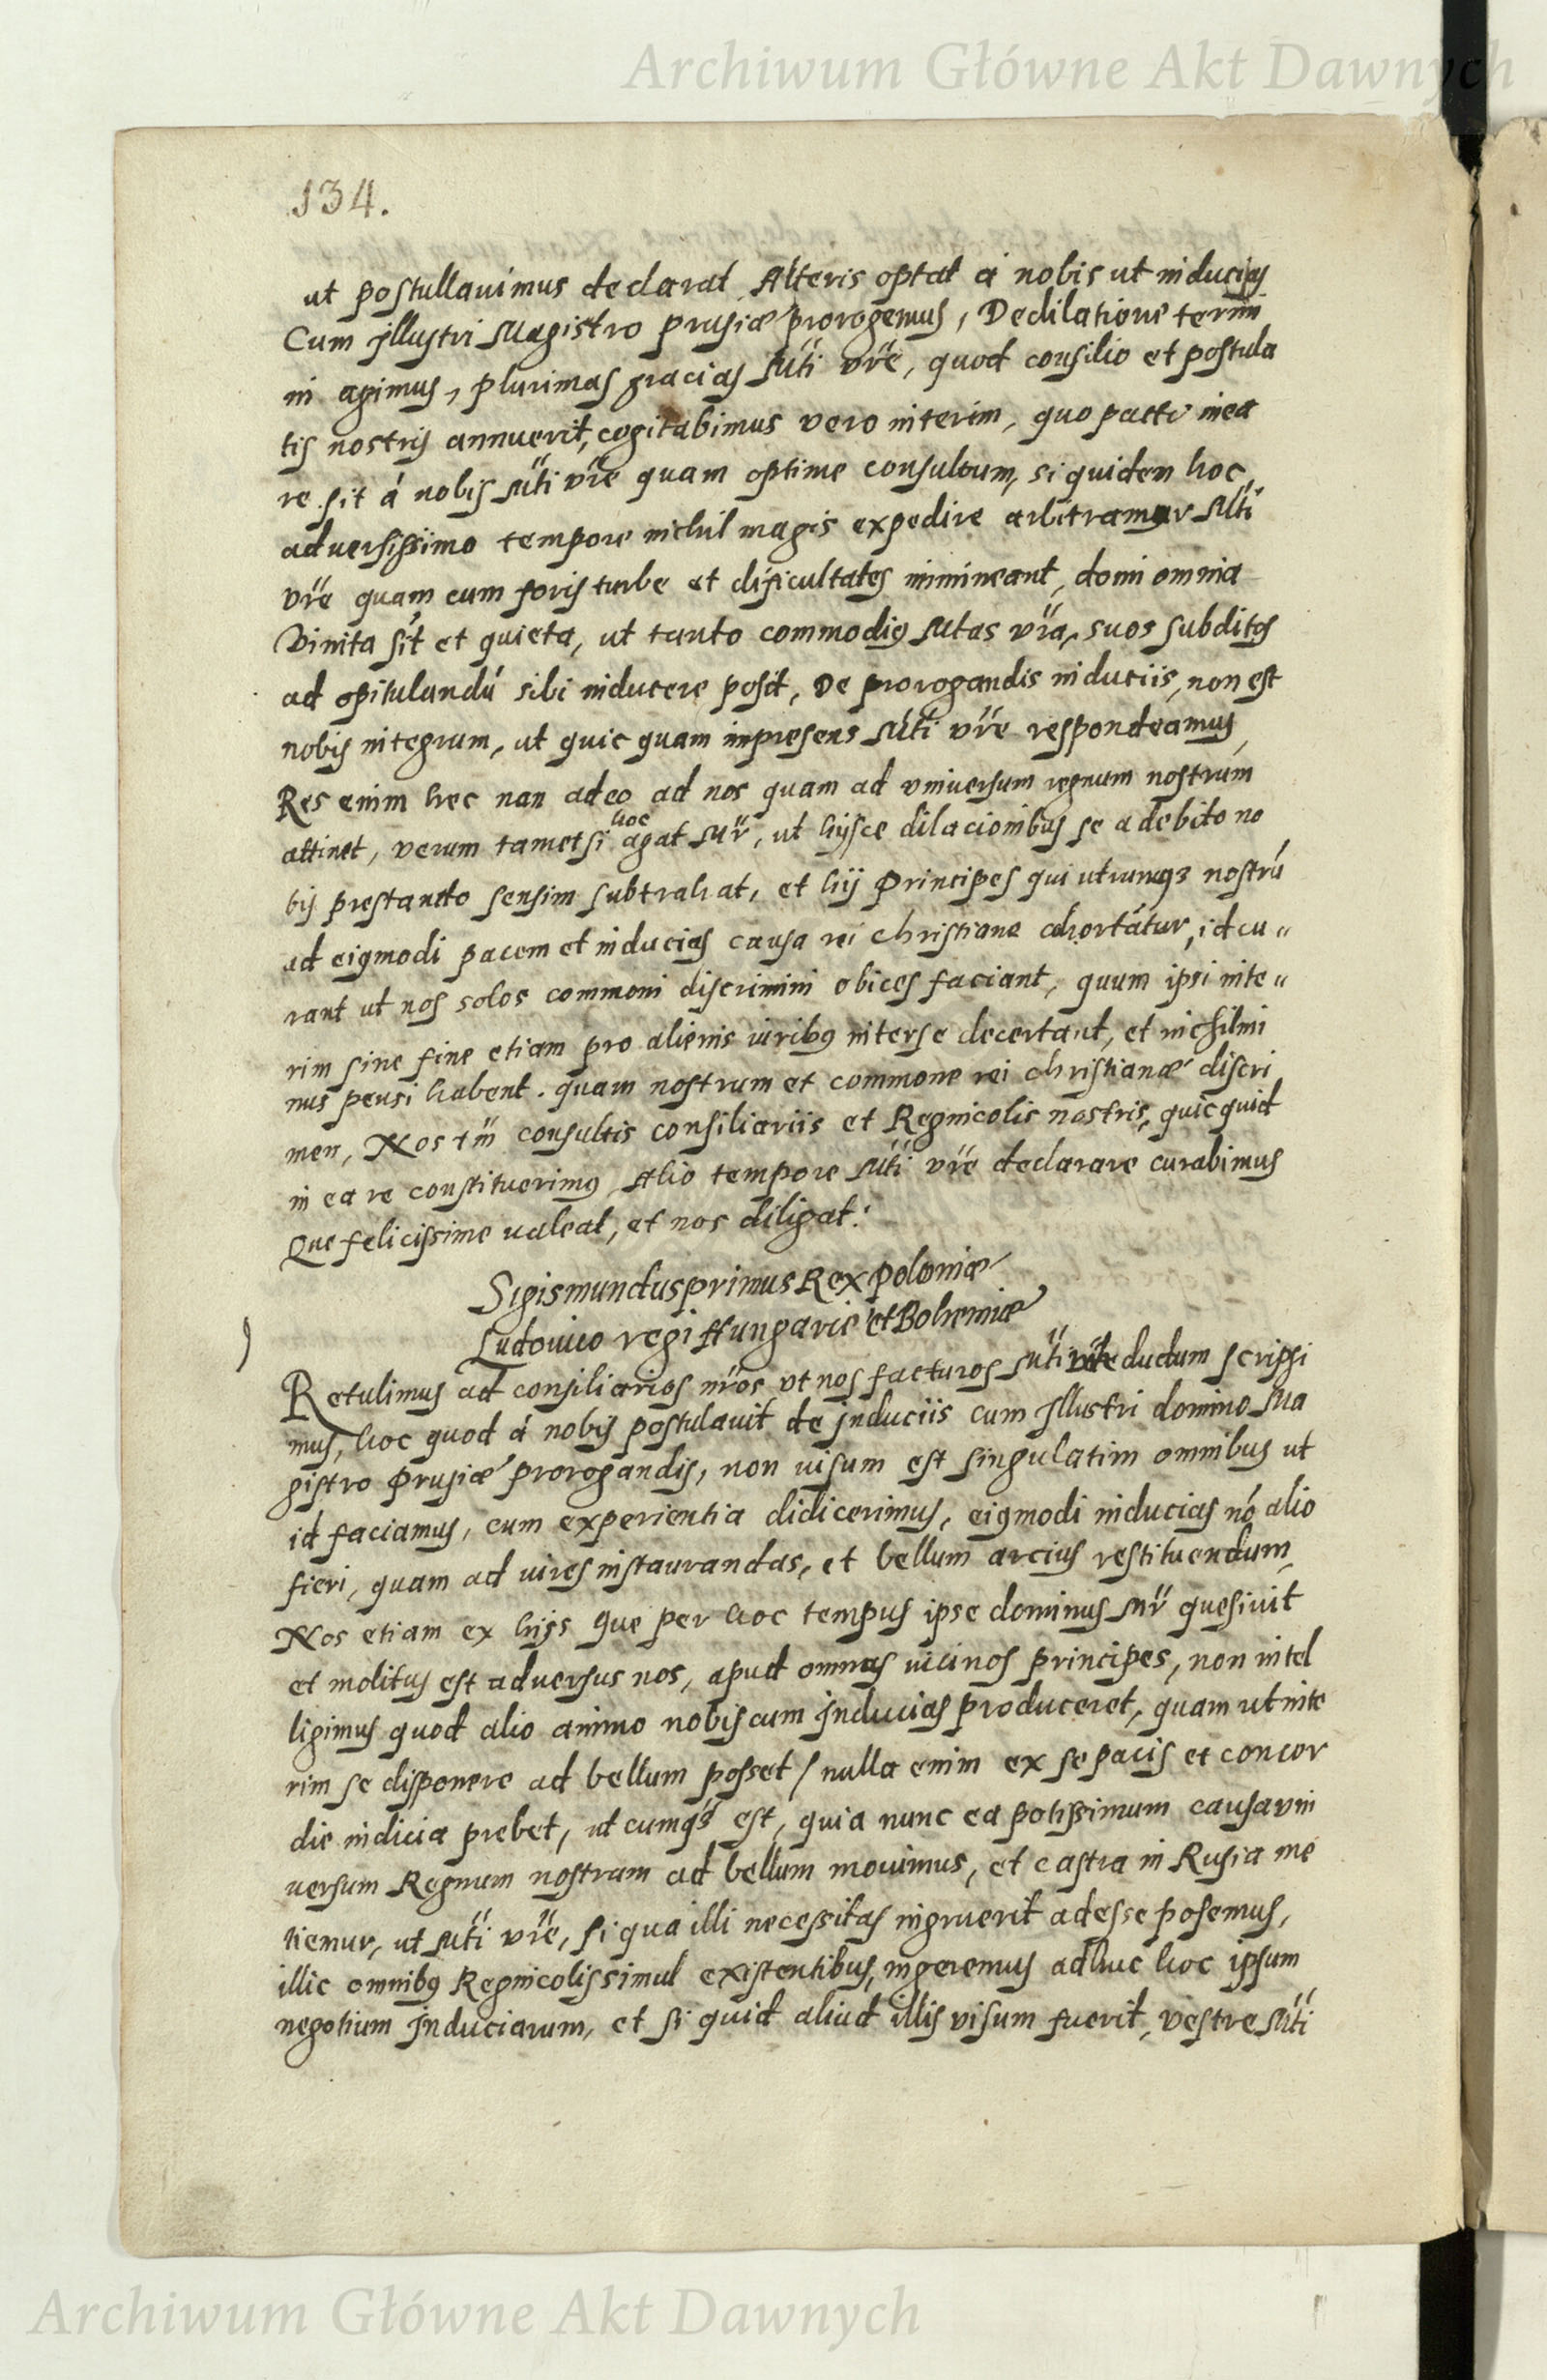 Archiwum Główne Akt Dawnych
134.
ut postullauimus declarat Alteris optat á nobis ut inducias
Cum Jllustri Magistro prusiæ prorogemus, De dilatione termi
ni agimus, plurimas gracias Mti vre, quod consilio et postula
tis nostris annuerit, cogitabimus vero interim, quo pacto in ea
re sit á nobis Mti vre quam optime consultum, si quidem hoc
adversissimo tempore nichil magis expedire arbitramur Mti
vre quam cum foris turbe et dificultates immineant, domi omnia
Vinita sit et quieta, ut tanto commodius Mtas vra, suos subditos
ad opitulandú sibi inducere posit, De prorogandis induciis, non est
nobis integrum, ut quic quam inpresens Mti vre respondeamus,
Res enim hec nan adeo ad nos quam ad vniversum regnum nostrum
attinet, verum tametsi hoc agat Mr, ut hijsce dilacionibus se a debito no
bis prestando sensim subtrahat, et hij Principes qui utrumqz nostrú
ad eiusmodi pacem et inducias causa rei christiane cohortátur, id cu〃
rant ut nos solos commoni discrimini obices faciant, quum ipsi inte〃
rim sine fine etiam pro alienis iuribus inter se decertant, et nichilmi
nus pensi habent. quam nostrum et commone rei christianæ discri
men, Nos tm consultis consiliariis et Regnicolis nostris, quicquid
in ea re constituerimus Alio tempore Mti vre declarare curabimus
Que felicissime valeat, et nos diligat:
Sigismundus primus Rex poloniæ
Ludouico regi Hungarie et Bohemiæ
Retulimus ad consiliarios nros vt nos facturos Mti vre dudum scripsi
mus, hoc quod á nobis postulauit de Jnduciis cum Jllustri domino Ma
gistro Prusiæ prorogandis, non uisum est singulatim omnibus ut
id faciamus, cum experientia didicerimus, eiusmodi inducias nó alio
fieri, quam ad uires instaurandas, et bellum arcius restituendum,
Nos etiam ex hijs que per hoc tempus ipse dominus Mr quesiuit
et molitus est adversus nos, apud omnes uicinos principes, non intel
ligimus quod alio animo nobiscum Jnducias produceret, quam ut inte
rim se disponere ad bellum posset / nulla enim ex se pacis et concor
die indicia prebet, ut cumqz est, quia nunc ea potissimum causa vni
versum Regnum nostrum ad bellum mouimus, et castra in Rusia me
tiemur, ut Mti vre, si qua illi necessitas ingruerit adesse posemus,
illic omnibus Regnicolis simul existentibus, ingeremus adhuc hoc ipsum
negotium Jnduciarum, et si quid aliud illis visum fuerit, vestre Mti
Archiwum Główne Akt Dawnych